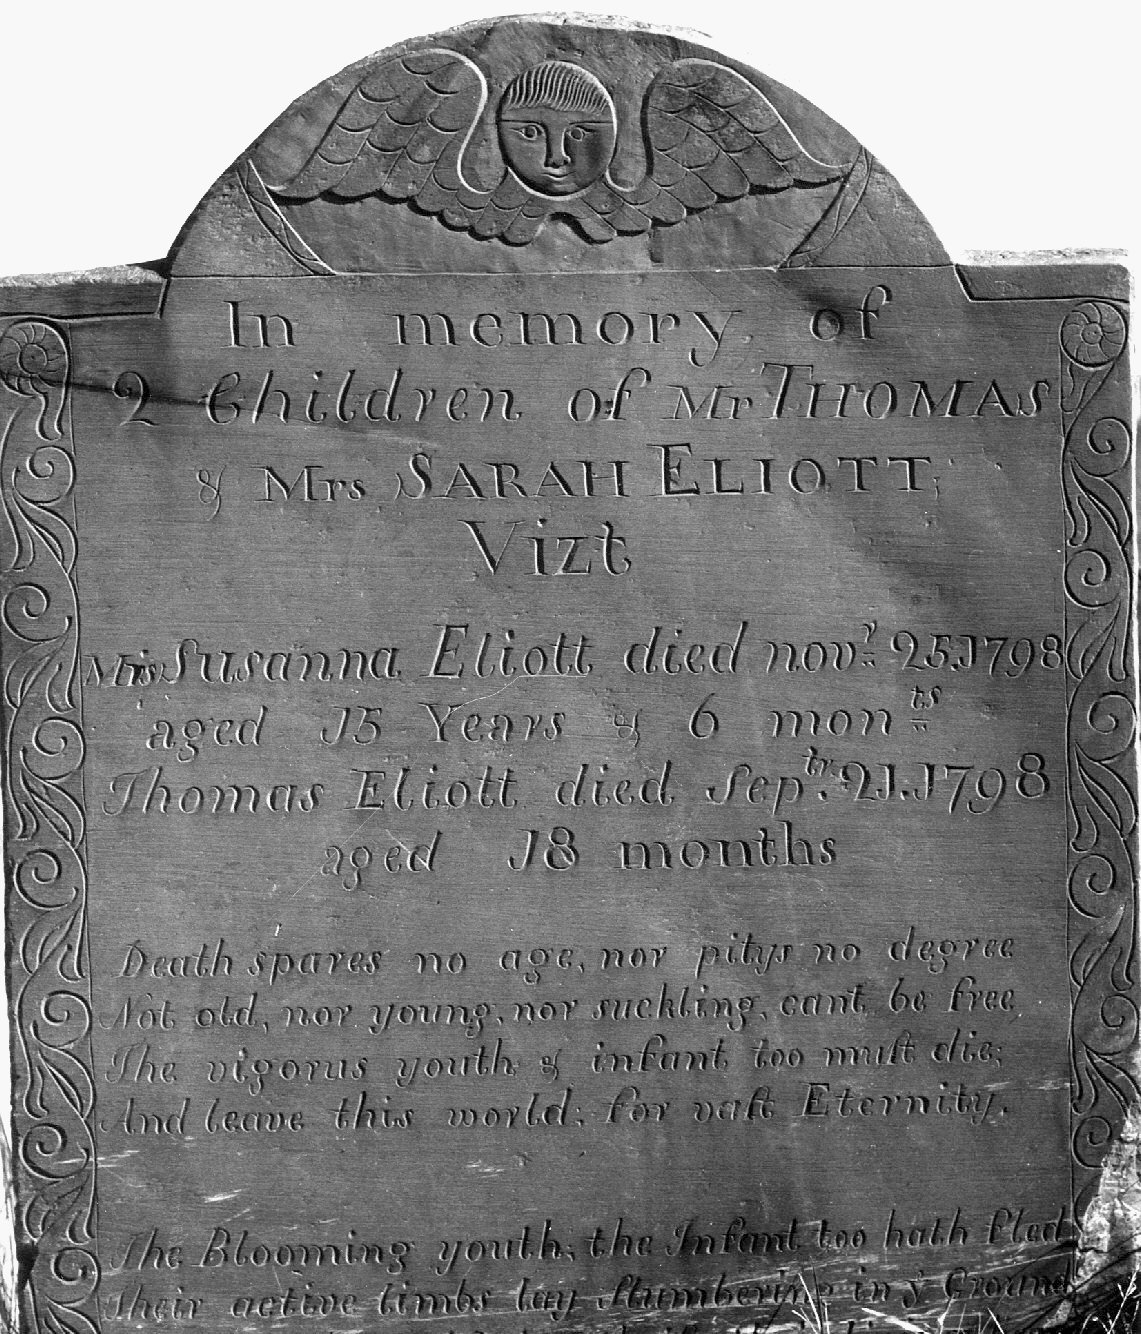 In memory of
2 Children of Mr THOMAS
& Mrs SARAH ELIOTT;
Vizt
Miss Susanna Eliott died novr 25.1798
aged 15 Years & 6 monts
Thomas Eliott died Septr.21.1798
aged 18 months
Death spares no age, nor pitys no degree
Not old, nor young, nor suckling, cant be free,
The vigorus youth & infant too muſt die;
And leave this world; for vaſt Eternity.
The Blooming youth, the Infant too hath fled
Their active limbs lay slumbering in ÿ Ground